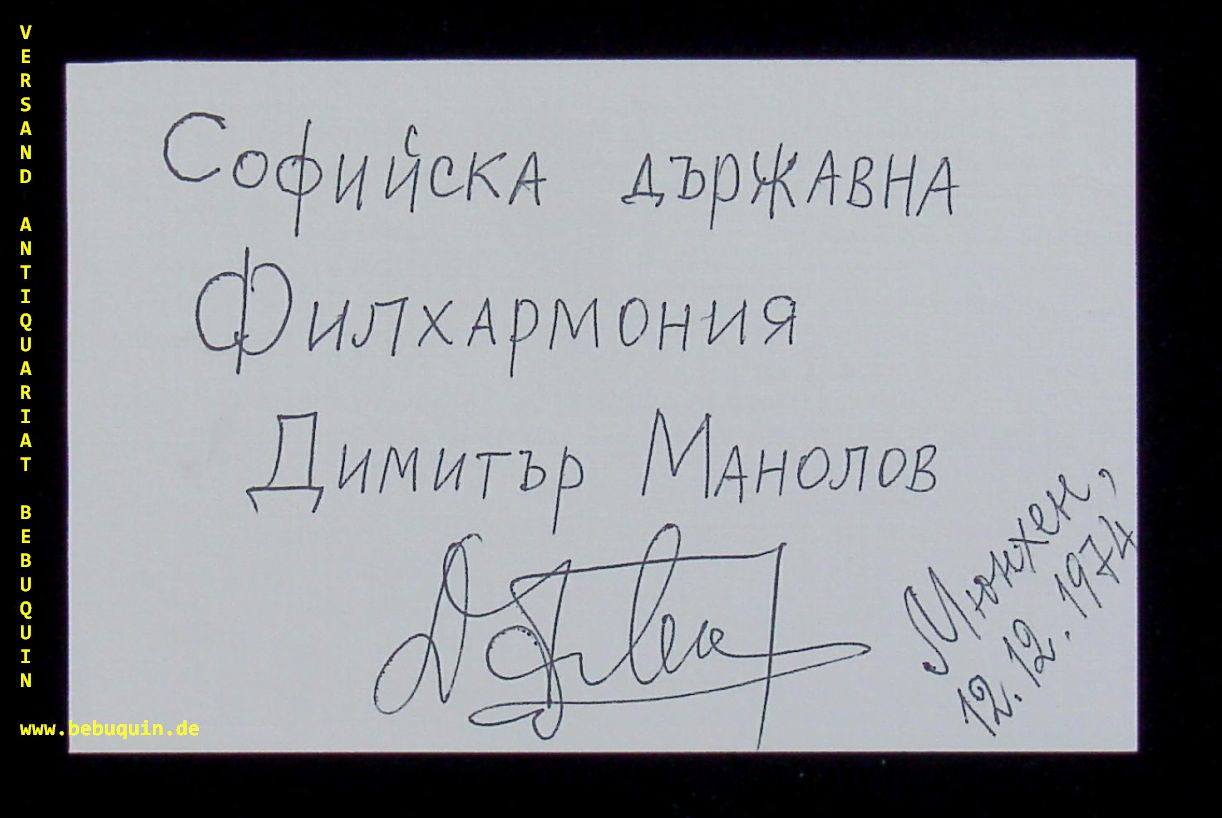 VERSAND ANTIQUARIAT BEBUQUIN
Софийска държавна
Филхармония
Димитър Манолов
Мюнхен,
12.12.1974
www.bebuquin.de